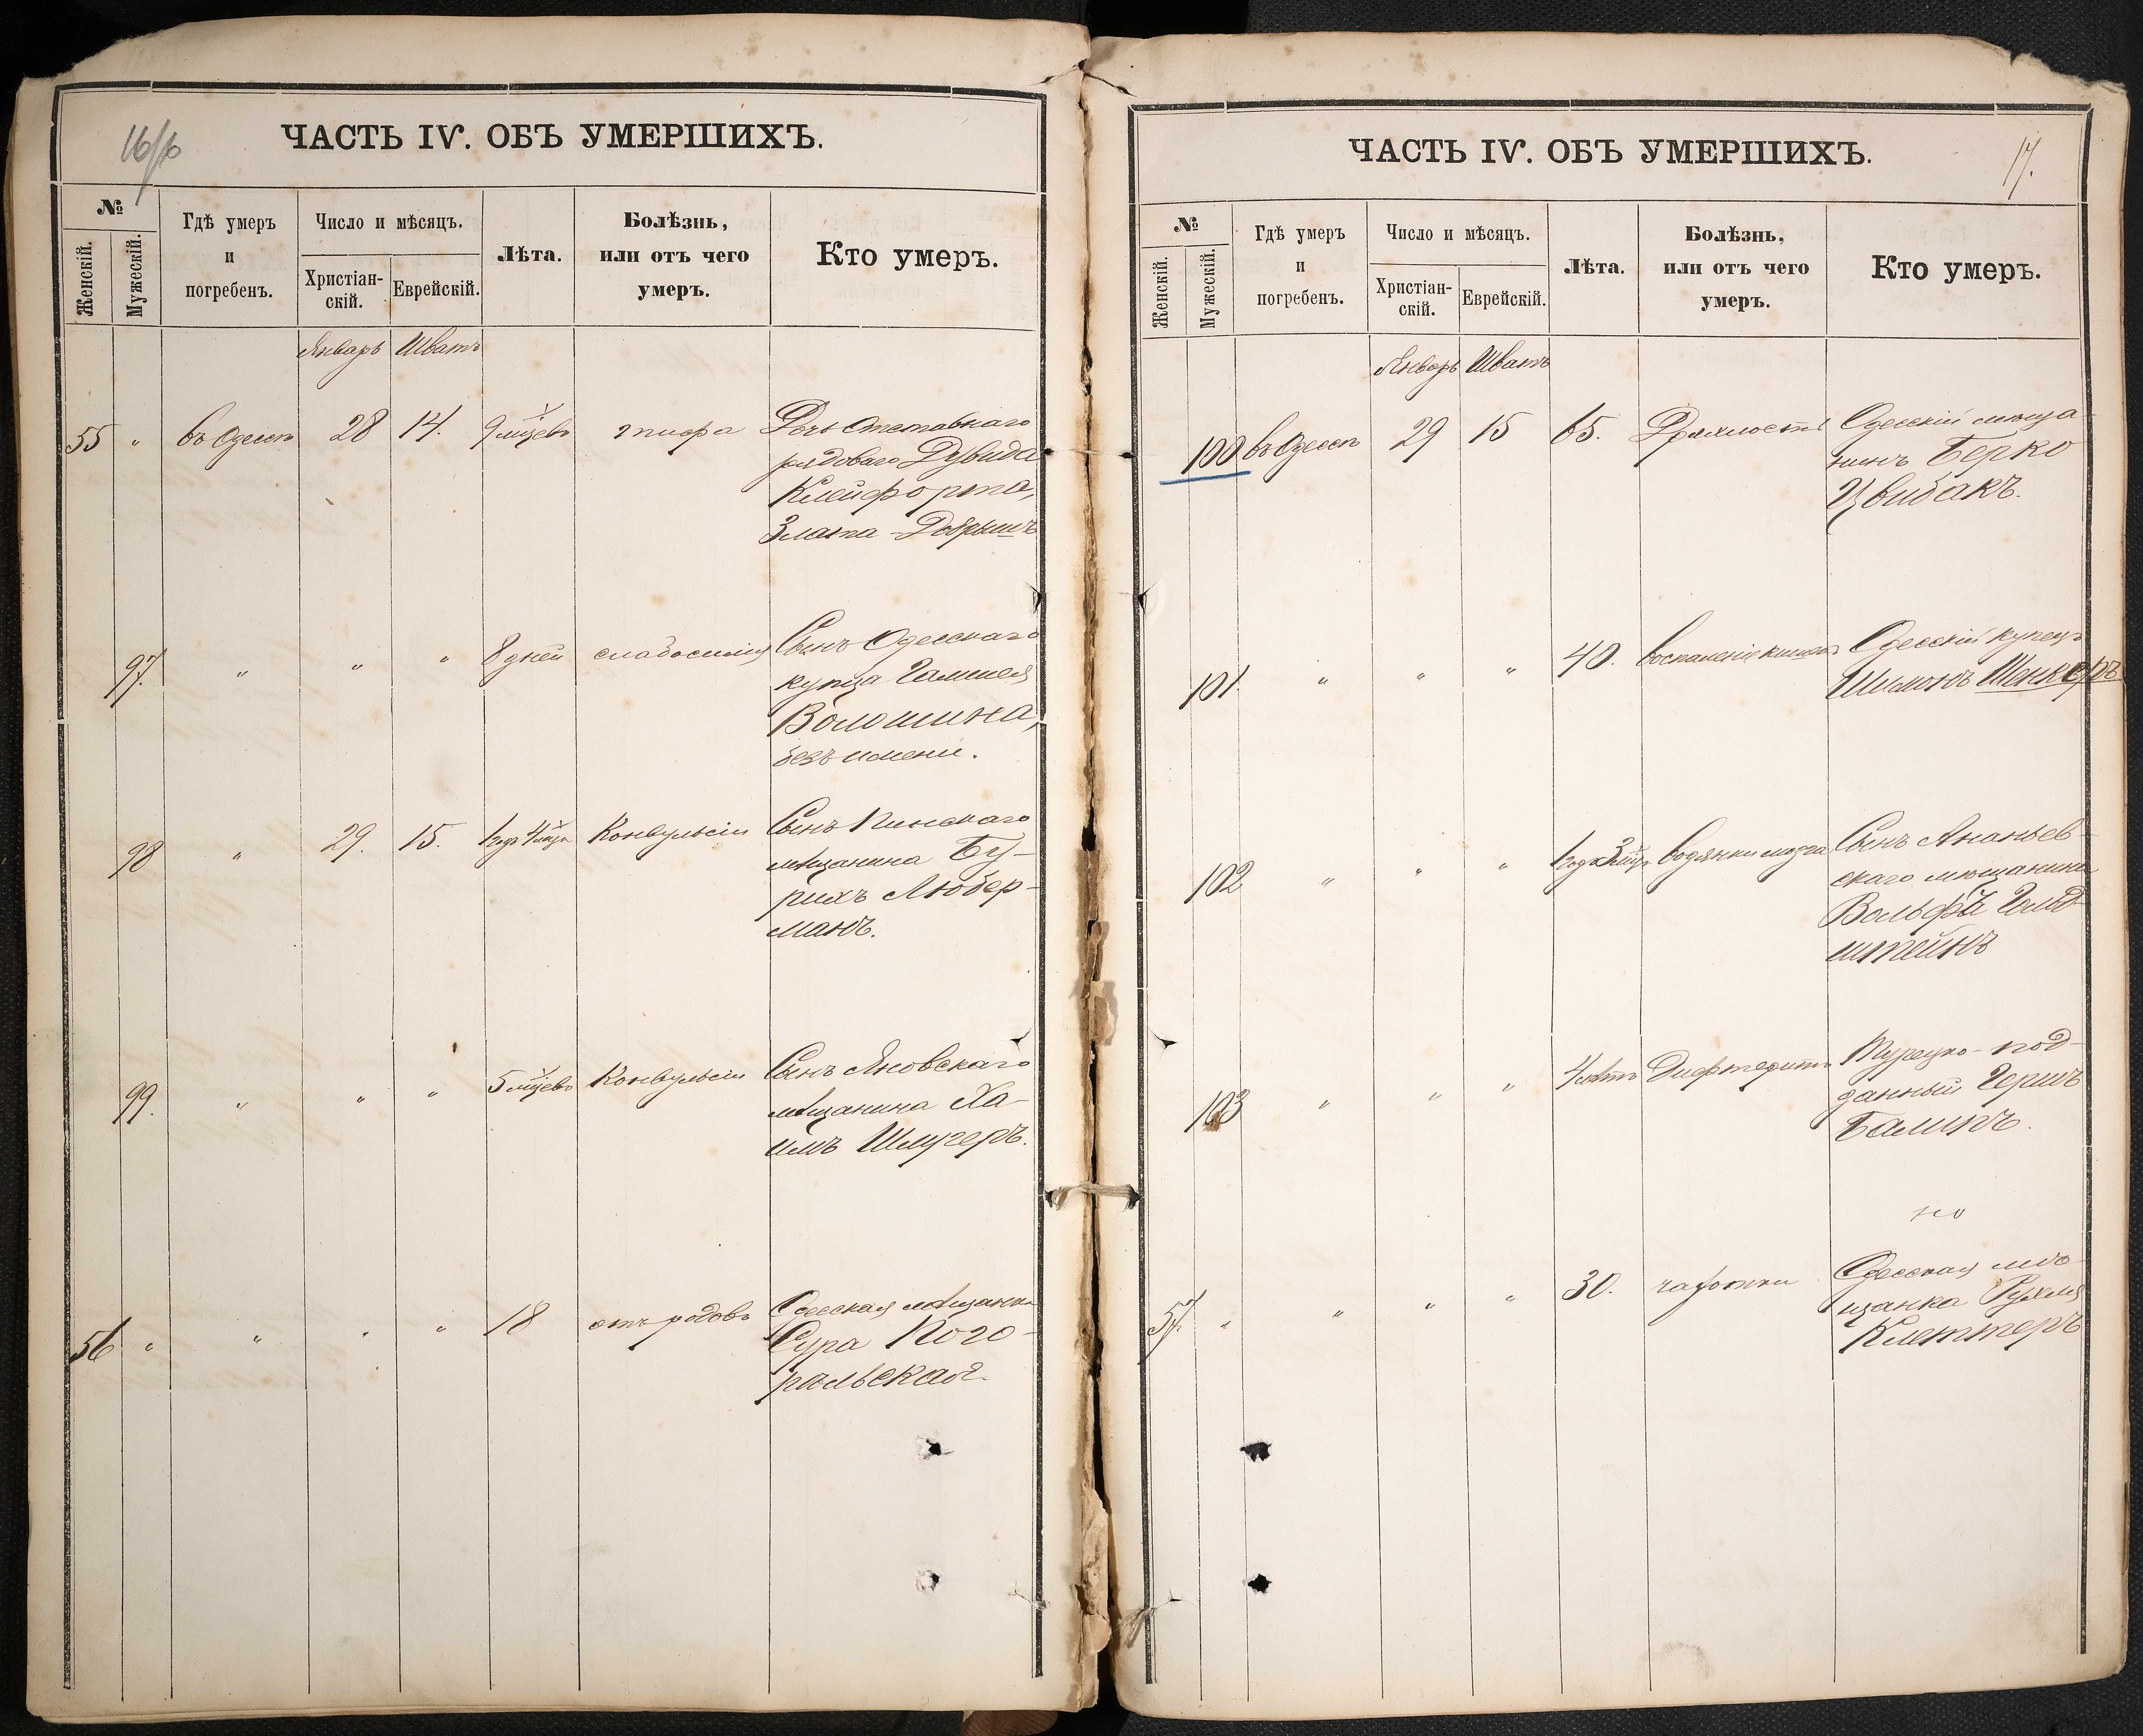 16/16
ЧАСТЬ IV. ОБЪ УМЕРШИХЪ.
№
Женскій.
Мужескій.
Гдѣ умеръ
и
погребенъ.
Число и мѣсяцъ.
Христіан-
скій.
Еврейскій.
Лѣта.
Болѣзнь,
или отъ чего
умеръ.
Кто умеръ.
Январь Шватъ
55 " въ Одессѣ 28 14. 9 мцевъ тифа Дочь Отставнаго
рядоваго Дувида
Клейфорта,
Злата - Добрышъ
97. " " " 8 дней слабосилія Сынъ Одесскаго
купца
Волошина,
безъ имени.
98 " 29. 15. 1 годъ 4 мца Конвульсіи Сынъ Пинскаго
мѣщанина Бу-
рихъ Любер-
манъ.
99. " " " 5 мцевъ Конвульсіи Сынъ Яновскаго
мѣщанина Ха-
имъ Шмугеръ.
56 " " " " 18 отъ родовъ Одесская мѣщанка
Сура Пого-
рѣльская.
ЧАСТЬ IV. ОБЪ УМЕРШИХЪ.
17.
№
Женскій.
Мужескій.
Гдѣ умеръ
и
погребенъ.
Число и мѣсяцъ.
Христіан-
скій.
Еврейскій.
Лѣта.
Болѣзнь,
или отъ чего
умеръ.
Кто умеръ.
Январь Шватъ
100 въ Одессѣ 29 15 65. Дряхлости Одесскій мѣща-
нинъ Берко
Цвибакъ.
101. " " " 40. Воспаленіе кишекъ Одесскій купецъ
Шимонъ Шенкеръ
102 " " " 1 годъ 3 мца Водянки мозга Сынъ Ананьев-
скаго мѣщанина
Вольфъ Гольд-
штейнъ
103 " " " 4 лѣтъ Дифтеритъ Турецко-под-
данный Гершъ
Баликъ.
но
57. " " " " 30. чахотки Одесская мѣ-
щанка Рухля
Клеттеръ